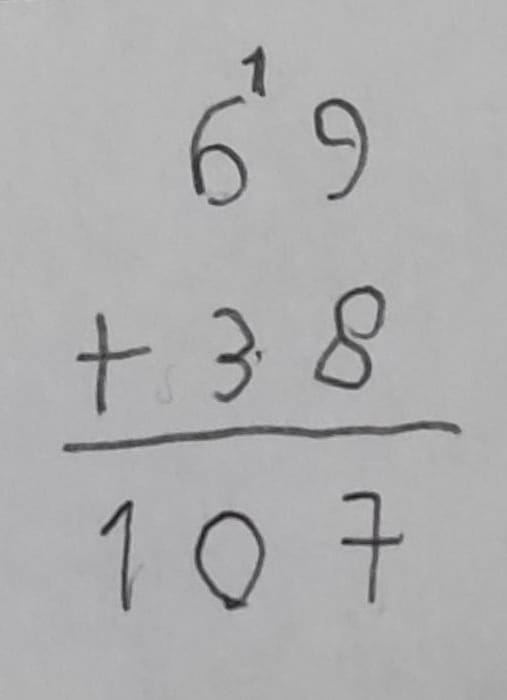 1
69
+ 38
107